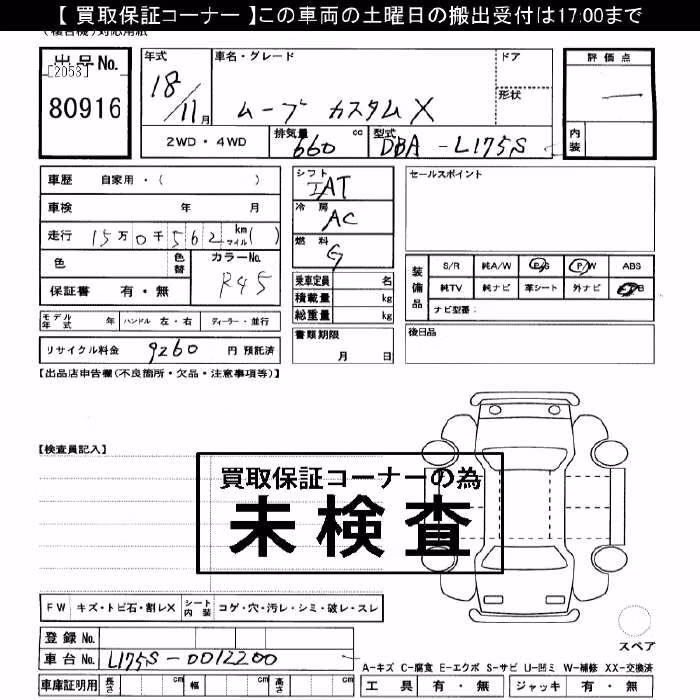 【 買取保証コーナー 】この車両の土曜日の搬出受付は17:00まで
出品No.
[2053]
80916
年式
18/11月
車名・グレード
ムーブ カスタムX
ドア
形状
評価点
内装
2WD・4WD
排気量
660
cc
型式
DBA-L175S
車歴 自家用・( )
車検 年 月
走行 15万0千562 km マイル( )
色
色替
カラーNo.
R45
保証書 有・無
シフト
IAT
冷房
AC
燃料
G
乗車定員 名
積載量 kg
総重量 kg
セールスポイント
装備品
S/R 純A/W P/S P/W ABS
純TV 純ナビ 革シート 外ナビ
ナビ型番:
モデル年式 年 ハンドル 左・右 ディーラー・並行
書類期限
月 日
後日品
リサイクル料金 9260 円 預託済
【出品店申告欄(不良箇所・欠品・注意事項等)】
【検査員記入】
買取保証コーナーの為
未検査
FW キズ・トビ石・割レX シート内装 コゲ・穴・汚レ・シミ・破レ・スレ
登録No.
車台No. L175S-0012200
スペア
A-キズ C-腐食 E-エクボ S-サビ U-凹ミ W-補修 XX-交換済
車庫証明用 長さ cm 幅 cm 高さ cm
工具 有・無 ジャッキ 有・無